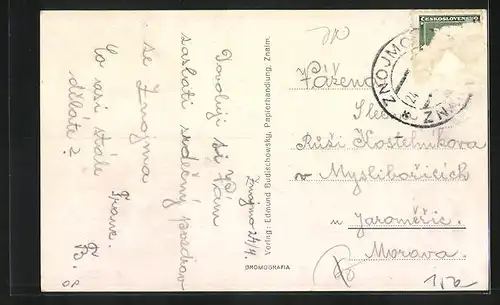 Dovoluji si Vám
zaslati srdečný pozdrav
ze Znojma
Co asi stále
děláte?
Franc.
B.
Znojmo 24/4.
Verlag: Edmund Budischowsky, Papierhandlung, Znaim.
BROMOGRAFIA
ČESKOSLOVENSKO
ZNOJMO
24
ZN
Vážená
Slečna
Růži Kostelníkova
v Myslibořicích
u Jaroměřic.
Morava.